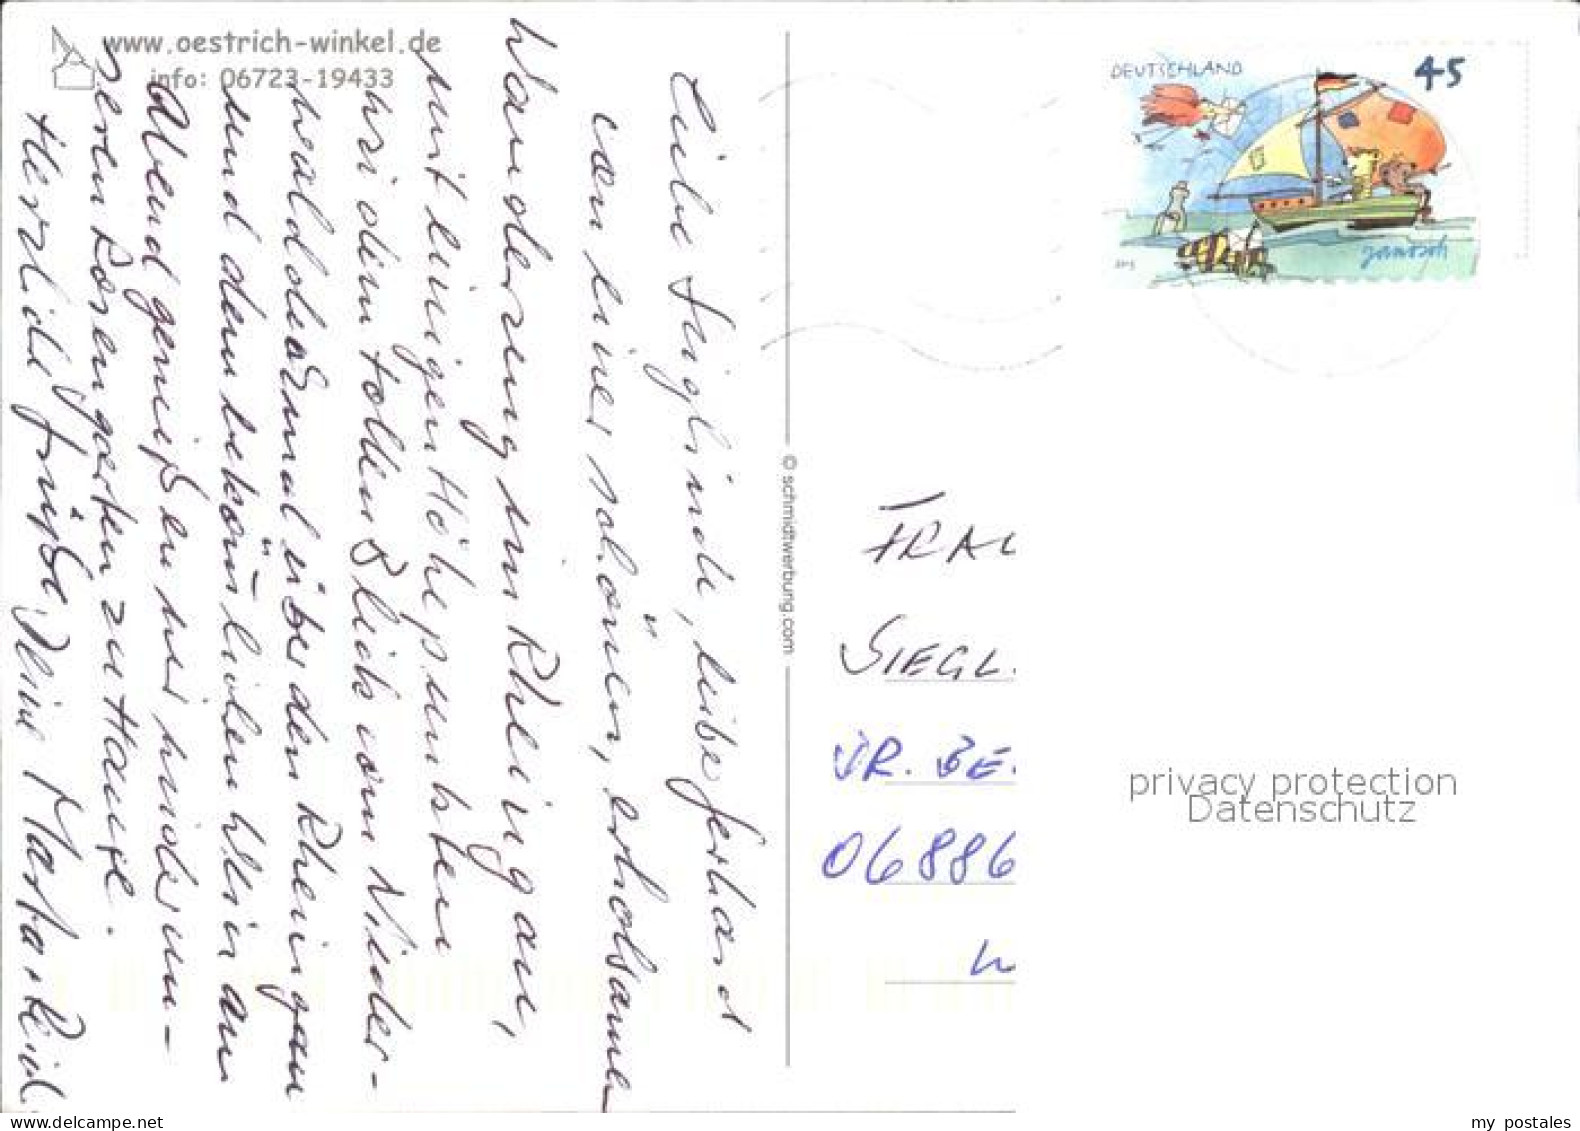 www.oestrich-winkel.de
info: 06723-19433
Liebe Sieglinde, liebe Gerhard
von einer schönen, erholsamen
Wanderung im Rheingau,
mit einigen Höhepunkten
wie dem tollen Blick vom Nieder-
walddenkmal über den Rheingau
und dem bekömlichen Wein am
Abend genießen wir wieder un-
seren Rosengarten zu Hause.
Herzliche Grüße Deine Marta +
© schmidtwerbung.com
DEUTSCHLAND
45
janosch
FRAU
SIEGL.
DR. BE.
06886
privacy protection
Datenschutz
my postales